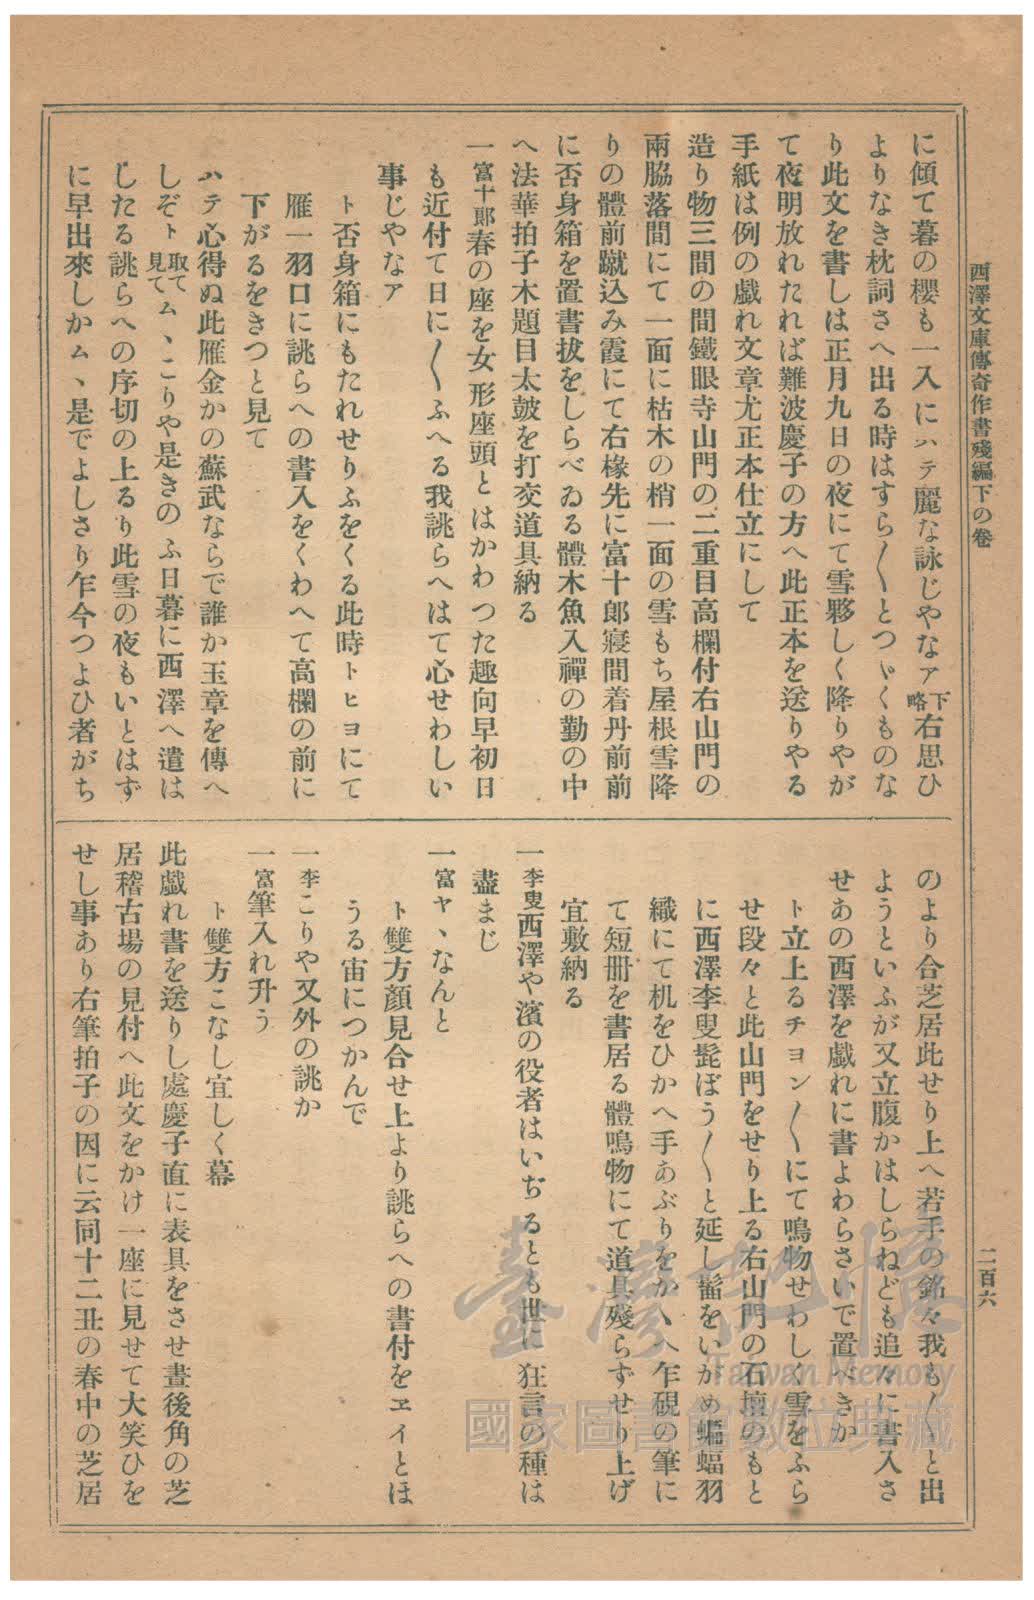 西澤文庫傳奇作書殘編下の卷
二百六
に傾て暮の櫻も一入にハテ麗な詠じやなァ下略右思ひ
よりなき枕詞さへ出る時はすら〱とつゞくものな
り此文を書しは正月九日の夜にて雪夥しく降りやが
て夜明放れたれば難波慶子の方へ此正本を送りやる
手紙は例の戯れ文章尤正本仕立にして
造り物三間の間鐵眼寺山門の二重目高欄付右山門の
兩脇落間にて一面に枯木の梢一面の雪もち屋根雪降
りの體前蹴込み霞にて右椽先に富十郎寢間着丹前前
に否身箱を置書拔をしらべゐる體木魚入禪の勤の中
へ法華拍子木題目太皷を打交道具納る
一富十郎春の座を女形座頭とはかわつた趣向早初日
も近付て日に〱ふへる我誂らへはて心せわしい
事じやなァ
ト否身箱にもたれせりふをくる此時トヒヨにて
雁一羽口に誂らへの書入をくわへて高欄の前に
下がるをきつと見て
ハテ心得ぬ此雁金かの蘇武ならで誰か玉章を傳へ
しぞト取て見てム丶こりや是きのふ日暮に西澤へ遣は
したる誂らへの序切の上るり此雪の夜もいとはず
に早出來しかム丶是でよしさり乍今つよひ者がち
のより合芝居此せり上へ若手の銘々我も〱と出
ようといふが又立腹かはしらねども追々に書入さ
せあの西澤を戯れに書よわらさいで置べきか
ト立上るチヨン〱にて鳴物せわしく雪をふら
せ段々と此山門をせり上る右山門の石壇のもと
に西澤李叟髭ぼう〱と延し髷をいがめ蝙蝠羽
織にて机をひかへ手あぶりをかゝへ乍硯の筆に
て短册を書居る體鳴物にて道具殘らずせり上げ
宜敷納る
一李叟西澤や濱の役者はいぢるとも世に狂言の種は
盡まじ
一富ヤ丶なんと
ト雙方顏見合せ上より誂らへの書付をヱイとほ
うる宙につかんで
一李こりや又外の誂か
一富筆入れ升う
ト雙方こなし宜しく幕
此戯れ書を送りし處慶子直に表具をさせ晝後角の芝
居稽古場の見付へ此文をかけ一座に見せて大笑ひを
せし事あり右筆拍子の因に云同十二丑の春中の芝居
臺灣記憶
Taiwan Memory
國家圖書館數位典藏